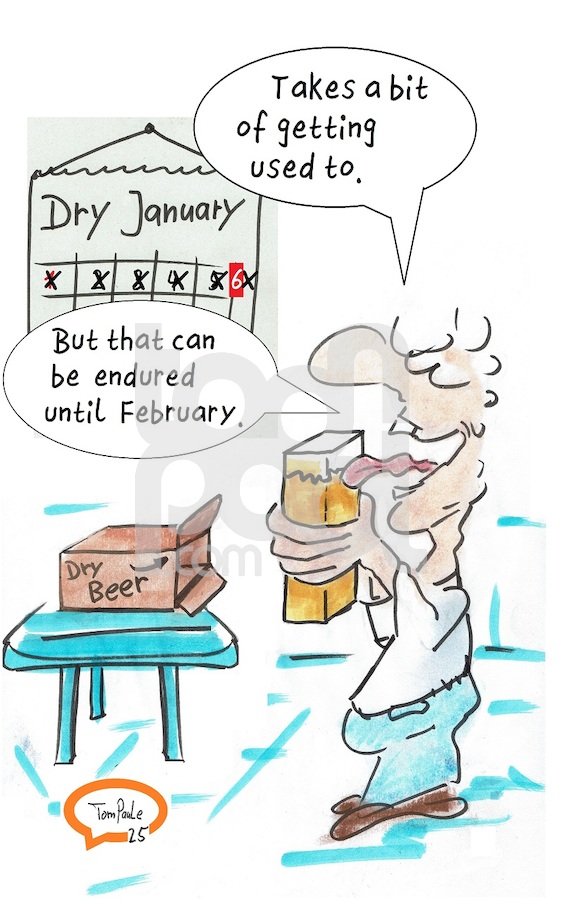 Takes a bit
of getting
used to.
Dry January
1 2 3 4 5 6
But that can
be endured
until February.
Dry
Beer
TomPaule
25
toonpool
.com